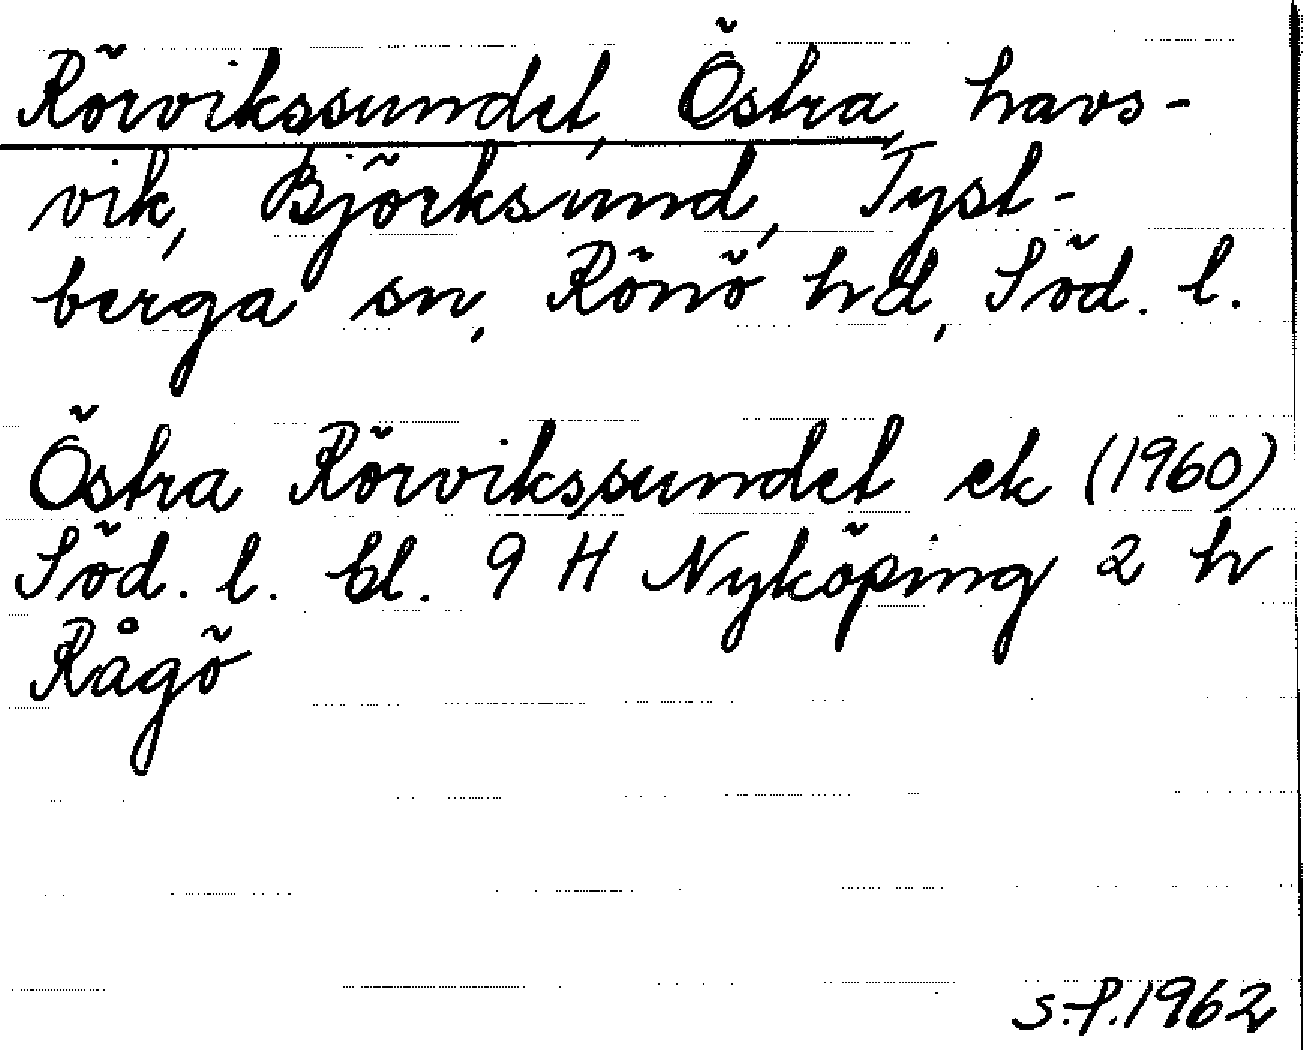 Rörvikssundet, Östra, havs-
vik, Björksund, Tyst-
berga sn, Rönö hd, Söd. l.
Östra Rörvikssundet ek (1960)
Söd. l. bl. 9 H Nyköping 2 h
Rågö
s.f. 1962